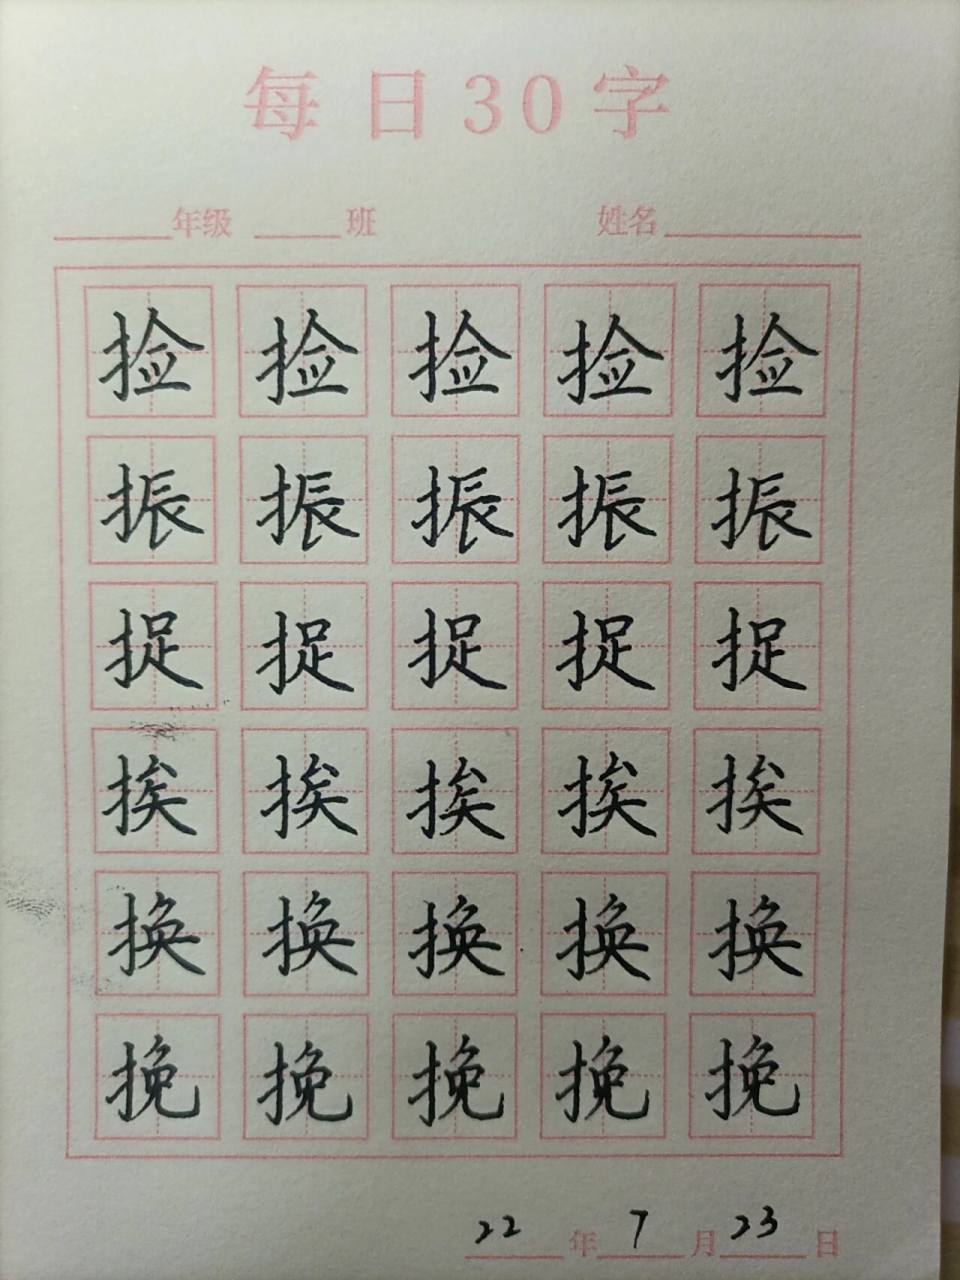 每日30字
年级 班 姓名
捡捡捡捡捡
振振振振振
捉捉捉捉捉
挨挨挨挨挨
换换换换换
挽挽挽挽挽
22年7月23日